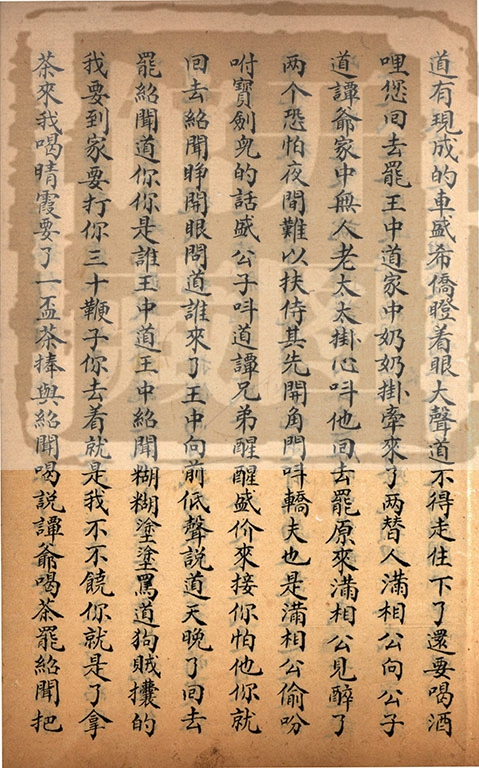 道有現成的車盛希僑瞪着眼大聲道不得走住下了還要喝酒
哩您回去罷王中道家中奶奶掛牽來了両替人滿相公向公子
道譚爺家中無人老太太掛心呌他回去罷原來滿相公見醉了
両个恐怕夜間難以扶侍其先開角門呌轎夫也是滿相公偷吩
咐寳劍兒的話盛公子呌道譚兄弟醒醒盛价來接你怕他你就
回去紹聞睜開眼問道誰來了王中向前低聲說道天晚了回去
罷紹聞道你你是誰王中道王中紹聞糊糊塗塗罵道狗賊攮的
我要到家要打你三十鞭子你去着就是我不不饒你就是了拿
茶來我喝晴霞要了一盃茶捧與紹聞喝説譚爺喝茶罷紹聞把